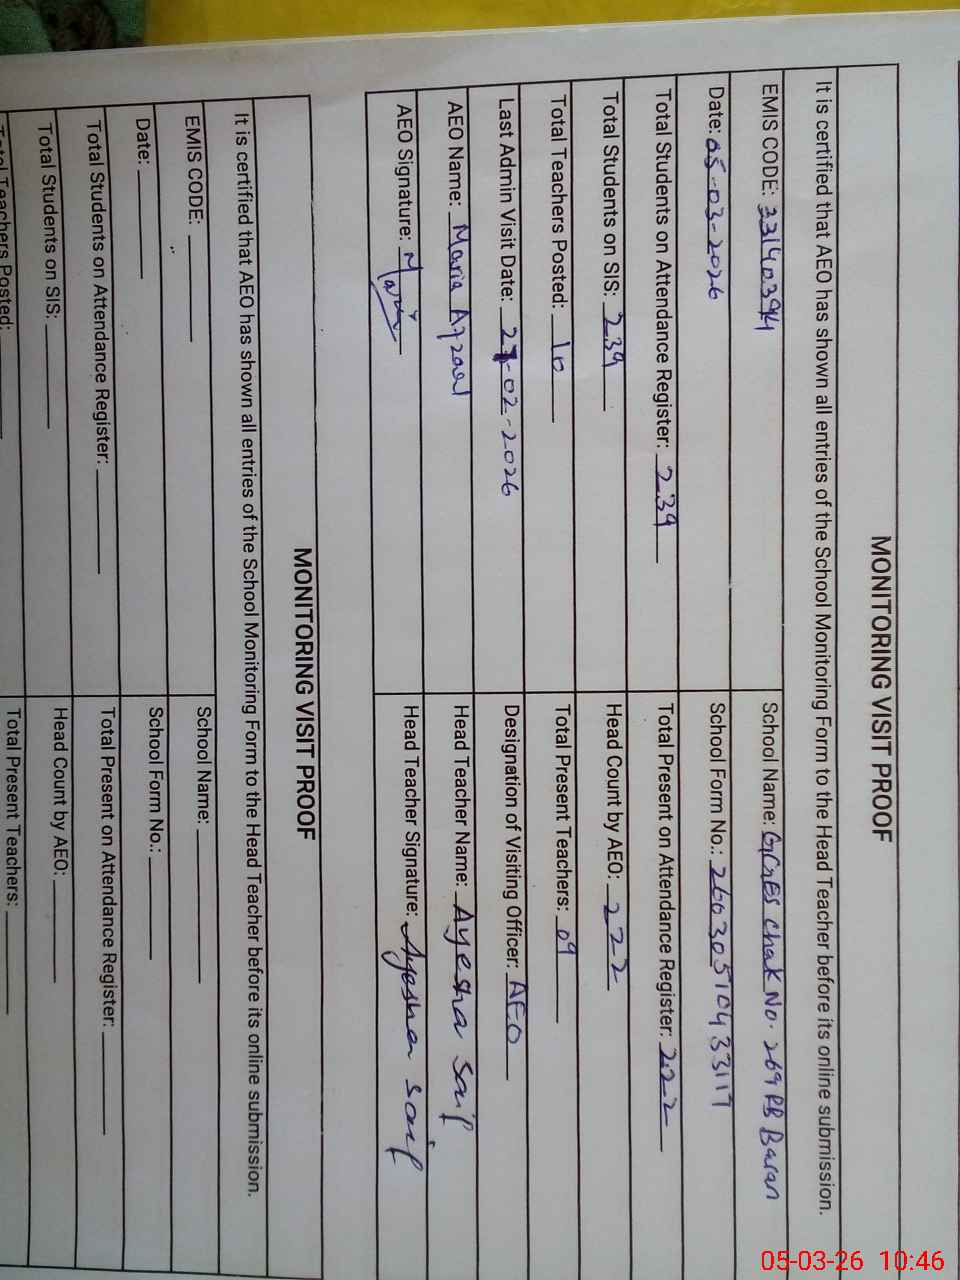 MONITORING VISIT PROOF
It is certified that AEO has shown all entries of the School Monitoring Form to the Head Teacher before its online submission.
EMIS CODE: 33140394 School Name: GGES Chak No. 269 RB Baran
Date: 05-03-2026 School Form No.: 260305104 33117
Total Students on Attendance Register: 239 Total Present on Attendance Register: 222
Total Students on SIS: 239 Head Count by AEO: 222
Total Teachers Posted: 10 Total Present Teachers: 09
Last Admin Visit Date: 27-02-2026 Designation of Visiting Officer: AEO
AEO Name: Maria Head Teacher Name: Ayesha Saif
AEO Signature: Maria Head Teacher Signature: Ayesha Saif
MONITORING VISIT PROOF
It is certified that AEO has shown all entries of the School Monitoring Form to the Head Teacher before its online submission.
EMIS CODE: School Name:
Date: School Form No.:
Total Students on Attendance Register: Total Present on Attendance Register:
Total Students on SIS: Head Count by AEO:
Total Teachers Posted: Total Present Teachers:
05-03-26 10:46